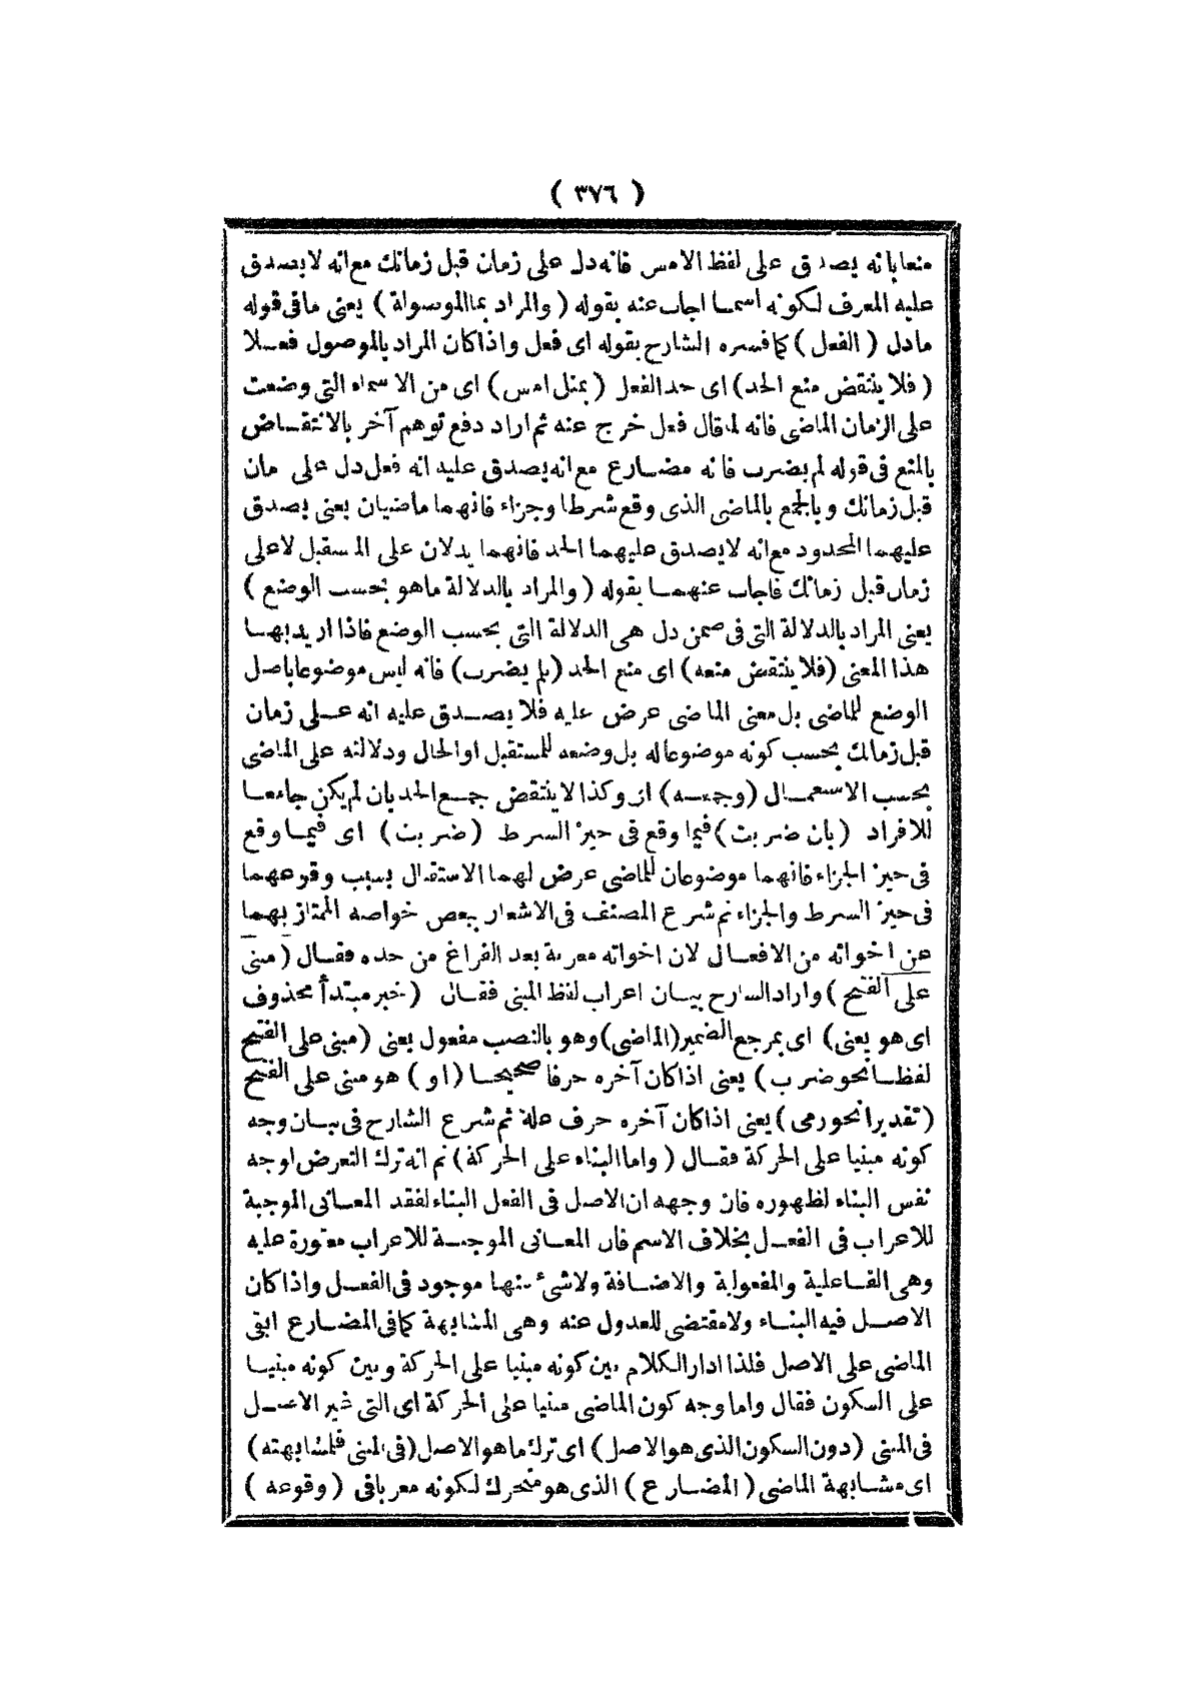 ( ٣٧٦ )
منعا بانه يصدق على لفظ الامس فانه دل على زمان قبل زمانك مع انه لا يصدق
عليه المعرف لكونه اسما اجاب عنه بقوله ( والمراد بما الموصولة ) يعنى ما فى قوله
ما دل ( الفعل ) كما فسره الشارح بقوله اى فعل واذا كان المراد بالموصول فعلا
( فلا ينتقض منع الحد ) اى حد الفعل ( بمثل امس ) اى من الاسماء التى وضعت
على الزمان الماضى فانه لما قال فعل خرج عنه ثم اراد دفع توهم آخر بالانتقاض
بالمنع فى قوله لم يضرب فانه مضارع مع انه يصدق عليه انه فعل دل على مان
قبل زمانك وبالجمع بالماضى الذى وقع شرطا وجزاء فانهما ماضيان يعنى يصدق
عليهما المحدود مع انه لا يصدق عليهما الحد فانهما يدلان على المستقبل لا على
زمان قبل زمانك فاجاب عنهما بقوله ( والمراد بالدلالة ما هو بحسب الوضع )
يعنى المراد بالدلالة التى فى ضمن دل هى الدلالة التى بحسب الوضع فاذا اريد بها
هذا المعنى ( فلا ينتقض منعه ) اى منع الحد ( بلم يضرب ) فانه ليس موضوعا باصل
الوضع للماضى بل معنى الماضى عرض عليه فلا يصدق عليه انه على زمان
قبل زمانك بحسب كونه موضوعا له بل وضعه للمستقبل او الحال ودلالته على الماضى
بحسب الاستعمال ( وجمعه ) اى وكذا لا ينتقض جمع الحد بان لم يكن جامعا
للافراد ( بان ضربت ) فيما وقع فى حيز الشرط ( ضربت ) اى فيما وقع
فى حيز الجزاء فانهما موضوعان للماضى عرض لهما الاستقبال بسبب وقوعهما
فى حيز الشرط والجزاء ثم شرع المصنف فى الاشعار ببعض خواصه الممتاز بهما
عن اخواته من الافعال لان اخواته معربة بعد الفراغ من حده فقال ( مبنى
على الفتح ) واراد الشارح بيان اعراب لفظ المبنى فقال ( خبر مبتدأ محذوف
اى هو يعنى ) اى بمرجع الضمير ( الماضى ) وهو بالنصب مفعول يعنى ( مبنى على الفتح
لفظا نحو ضرب ) يعنى اذا كان آخره حرفا صحيحا ( او ) هو مبنى على الفتح
( تقديرا نحو رمى ) يعنى اذا كان آخره حرف علة ثم شرع الشارح فى بيان وجه
كونه مبنيا على الحركة فقال ( واما البناء على الحركة ) ثم انه ترك التعرض لوجه
نفس البناء لظهوره فان وجهه ان الاصل فى الفعل البناء لفقد المعانى الموجبة
للاعراب فى الفعل بخلاف الاسم فان المعانى الموجبة للاعراب معتورة عليه
وهى الفاعلية والمفعولية والاضافة ولا شئ منها موجود فى الفعل واذا كان
الاصل فيه البناء ولا مقتضى للعدول عنه وهى المشابهة كما فى المضارع ابقى
الماضى على الاصل فلذا ادار الكلام بين كونه مبنيا على الحركة وبين كونه مبنيا
على السكون فقال واما وجه كون الماضى مبنيا على الحركة اى التى غير الاصل
فى المبنى ( دون السكون الذى هو الاصل ) اى ترك ما هو الاصل ( فى المبنى فلمشابهته )
اى مشابهة الماضى ( المضارع ) الذى هو متحرك لكونه معربا فى ( وقوعه )